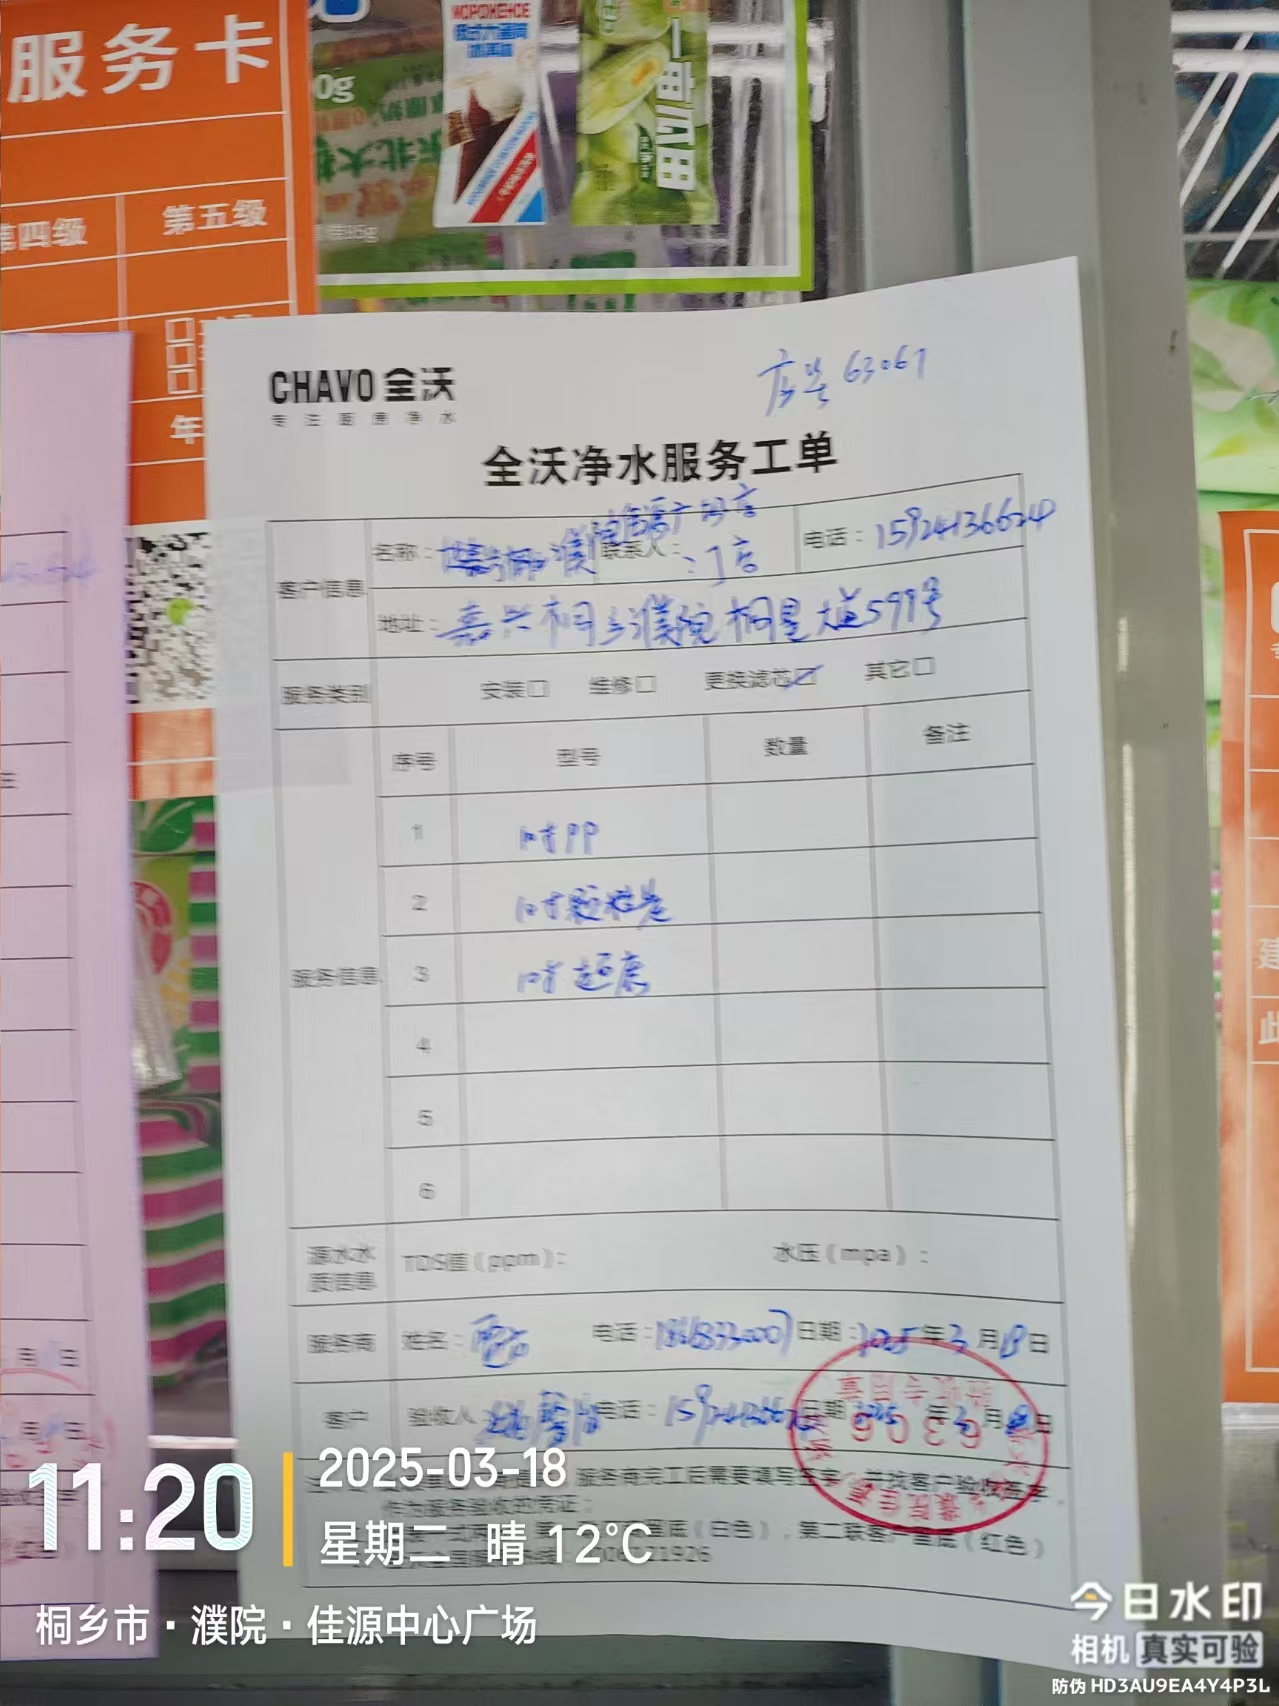 服务卡
第四级 第五级
年
一亩瓜田
CHAVO 全沃
专注厨房净水
店号 63061
全沃净水服务工单
客户信息 名称： 联系人： 门店 电话：15924136624
地址：嘉兴桐乡濮院桐星大道599号
服务类别 安装□ 维修□ 更换滤芯☑ 其它□
序号 型号 数量 备注
1 10寸PP
2 10寸颗粒炭
服务信息 3 10寸超康
4
5
6
源水水质信息 TDS值（ppm）： 水压（mpa）：
服务商 姓名： 电话： 日期：2025年3月18日
客户 验收人 电话： 日期 2025年3月18日
服务商完工后需要填写签字，并找客户验收签字，
作为服务验收的凭证；
留底（白色），第二联客户留底（红色）
11:20
2025-03-18
星期二 晴 12°C
桐乡市·濮院·佳源中心广场
今日水印
相机 真实可验
防伪 HD3AU9EA4Y4P3L